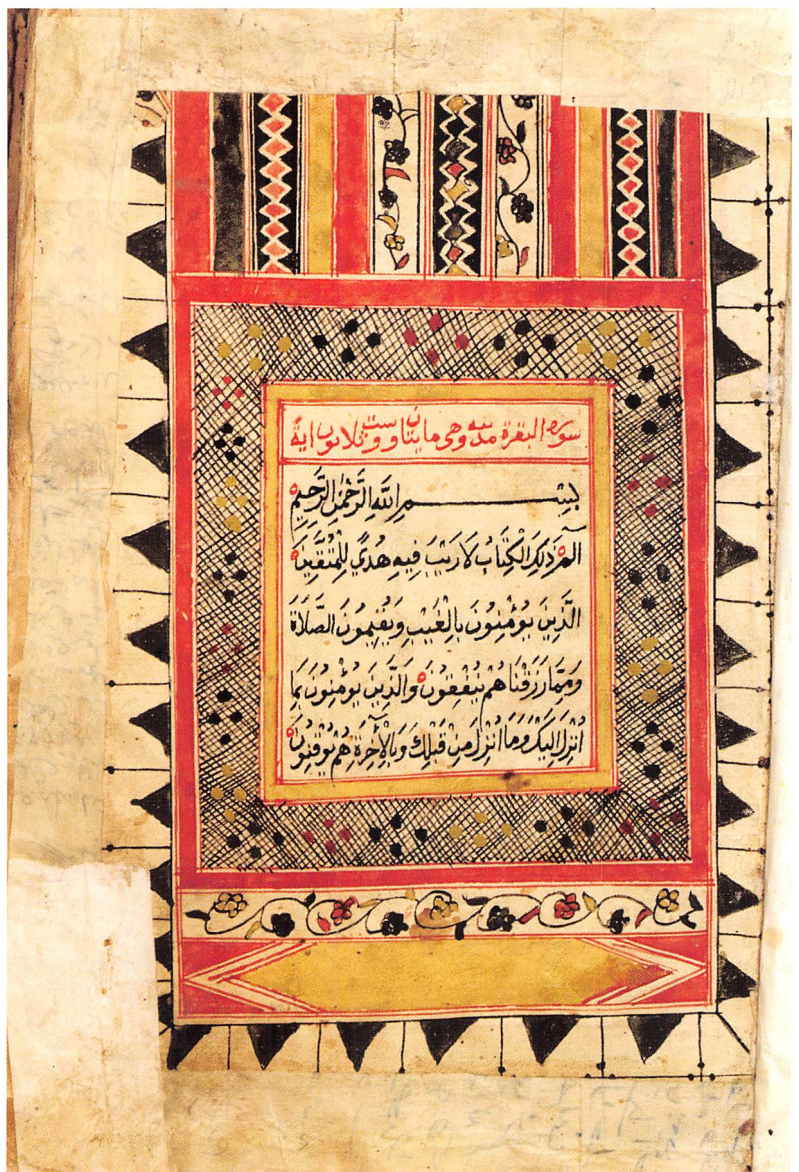 سورة البقرة مدنية وهي مايتان وست وثلاثون اية
بِسْمِ اللَّهِ الرَّحْمَٰنِ الرَّحِيمِ
الٓمٓ ذَٰلِكَ الْكِتَابُ لَا رَيْبَ فِيهِ هُدًى لِلْمُتَّقِينَ
الَّذِينَ يُؤْمِنُونَ بِالْغَيْبِ وَيُقِيمُونَ الصَّلَاةَ
وَمِمَّا رَزَقْنَاهُمْ يُنْفِقُونَ وَالَّذِينَ يُؤْمِنُونَ بِمَا
أُنْزِلَ إِلَيْكَ وَمَا أُنْزِلَ مِنْ قَبْلِكَ وَبِالْآخِرَةِ هُمْ يُوقِنُونَ